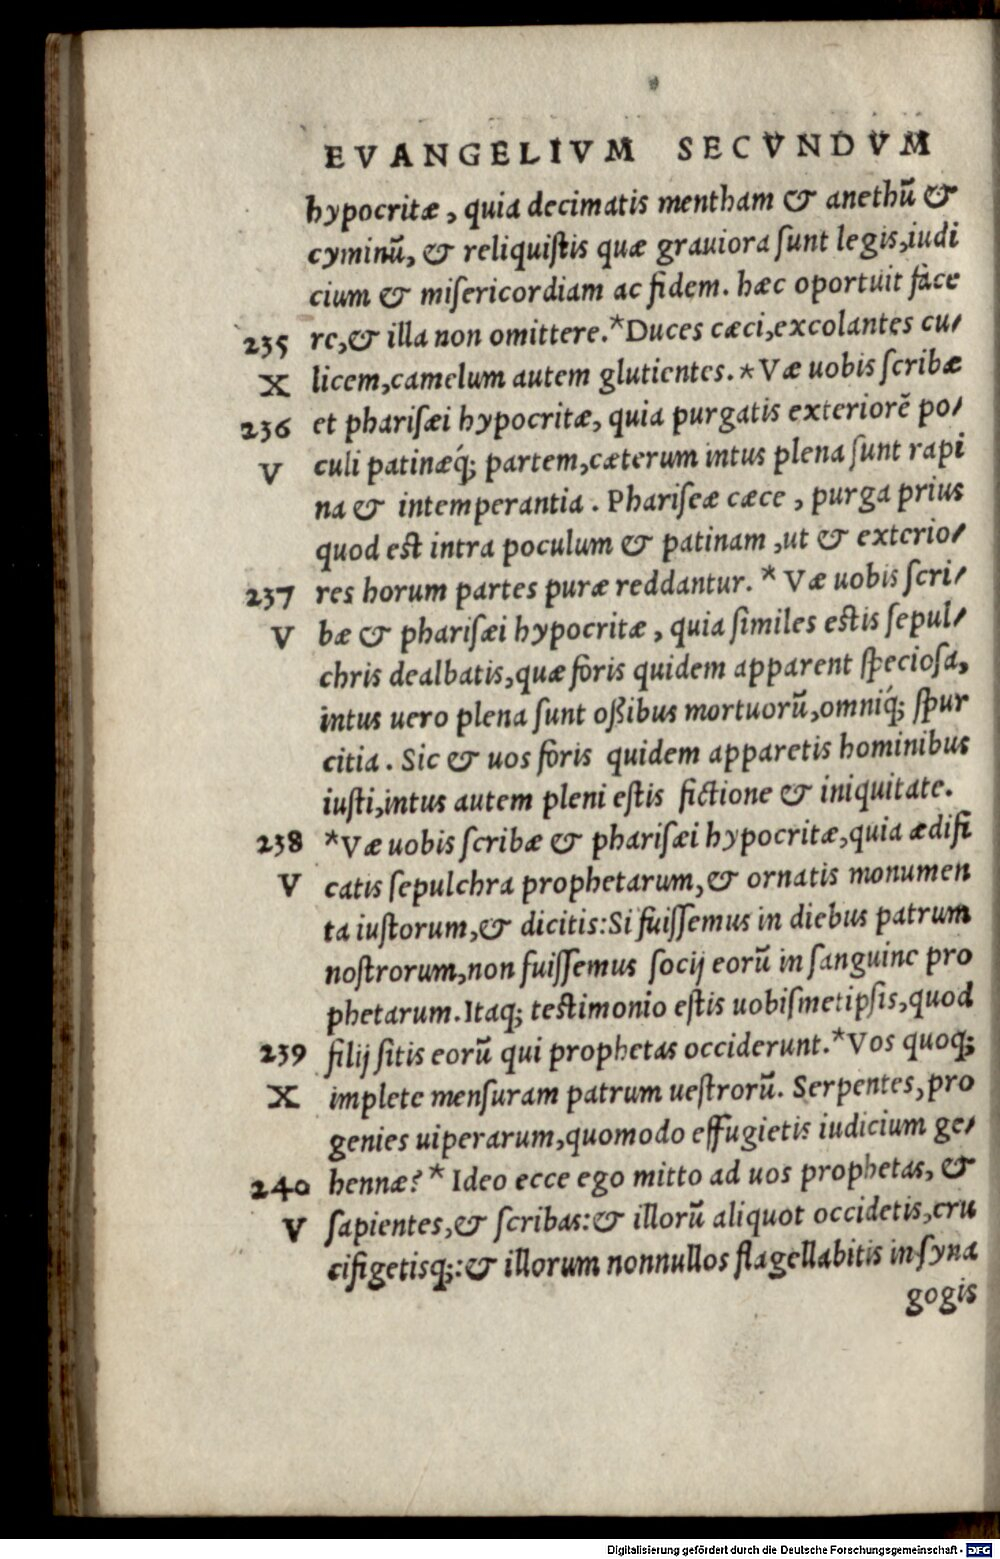 EVANGELIVM SECVNDVM
hypocritæ, quia decimatis mentham & anethū &
cyminū, & reliquistis quæ grauiora sunt legis,iudi
cium & misericordiam ac fidem. hæc oportuit face
235 re,& illa non omittere.*Duces cæci,excolantes cu/
X licem,camelum autem glutientes.*Væ uobis scribæ
236 et pharisæi hypocritæ, quia purgatis exteriorē po/
V culi patinæq́; partem,cæterum intus plena sunt rapi
na & intemperantia. Phariseæ cæce, purga prius
quod est intra poculum & patinam ,ut & exterio/
237 res horum partes puræ reddantur. * Væ uobis scri/
V bæ & pharisæi hypocritæ, quia similes estis sepul/
chris dealbatis,quæ foris quidem apparent speciosa,
intus uero plena sunt oßibus mortuorū,omniq́; spur
citia. Sic & uos foris quidem apparetis hominibus
iusti,intus autem pleni estis fictione & iniquitate.
238 *Væ uobis scribæ & pharisæi hypocritæ,quia ædifi
V catis sepulchra prophetarum,& ornatis monumen
ta iustorum,& dicitis:Si fuissemus in diebus patrum
nostrorum,non fuissemus socij eorū in sanguine pro
phetarum.Itaq; testimonio estis uobismetipsis,quod
239 filij sitis eorū qui prophetas occiderunt.*Vos quoq;
X implete mensuram patrum uestrorū. Serpentes,pro
genies uiperarum,quomodo effugietis iudicium ge/
240 hennæ?* Ideo ecce ego mitto ad uos prophetas, &
V sapientes,& scribas:& illorū aliquot occidetis,cru
cifigetisq;:& illorum nonnullos flagellabitis in syna
gogis
Digitalisierung gefördert durch die Deutsche Forschungsgemeinschaft - DFG